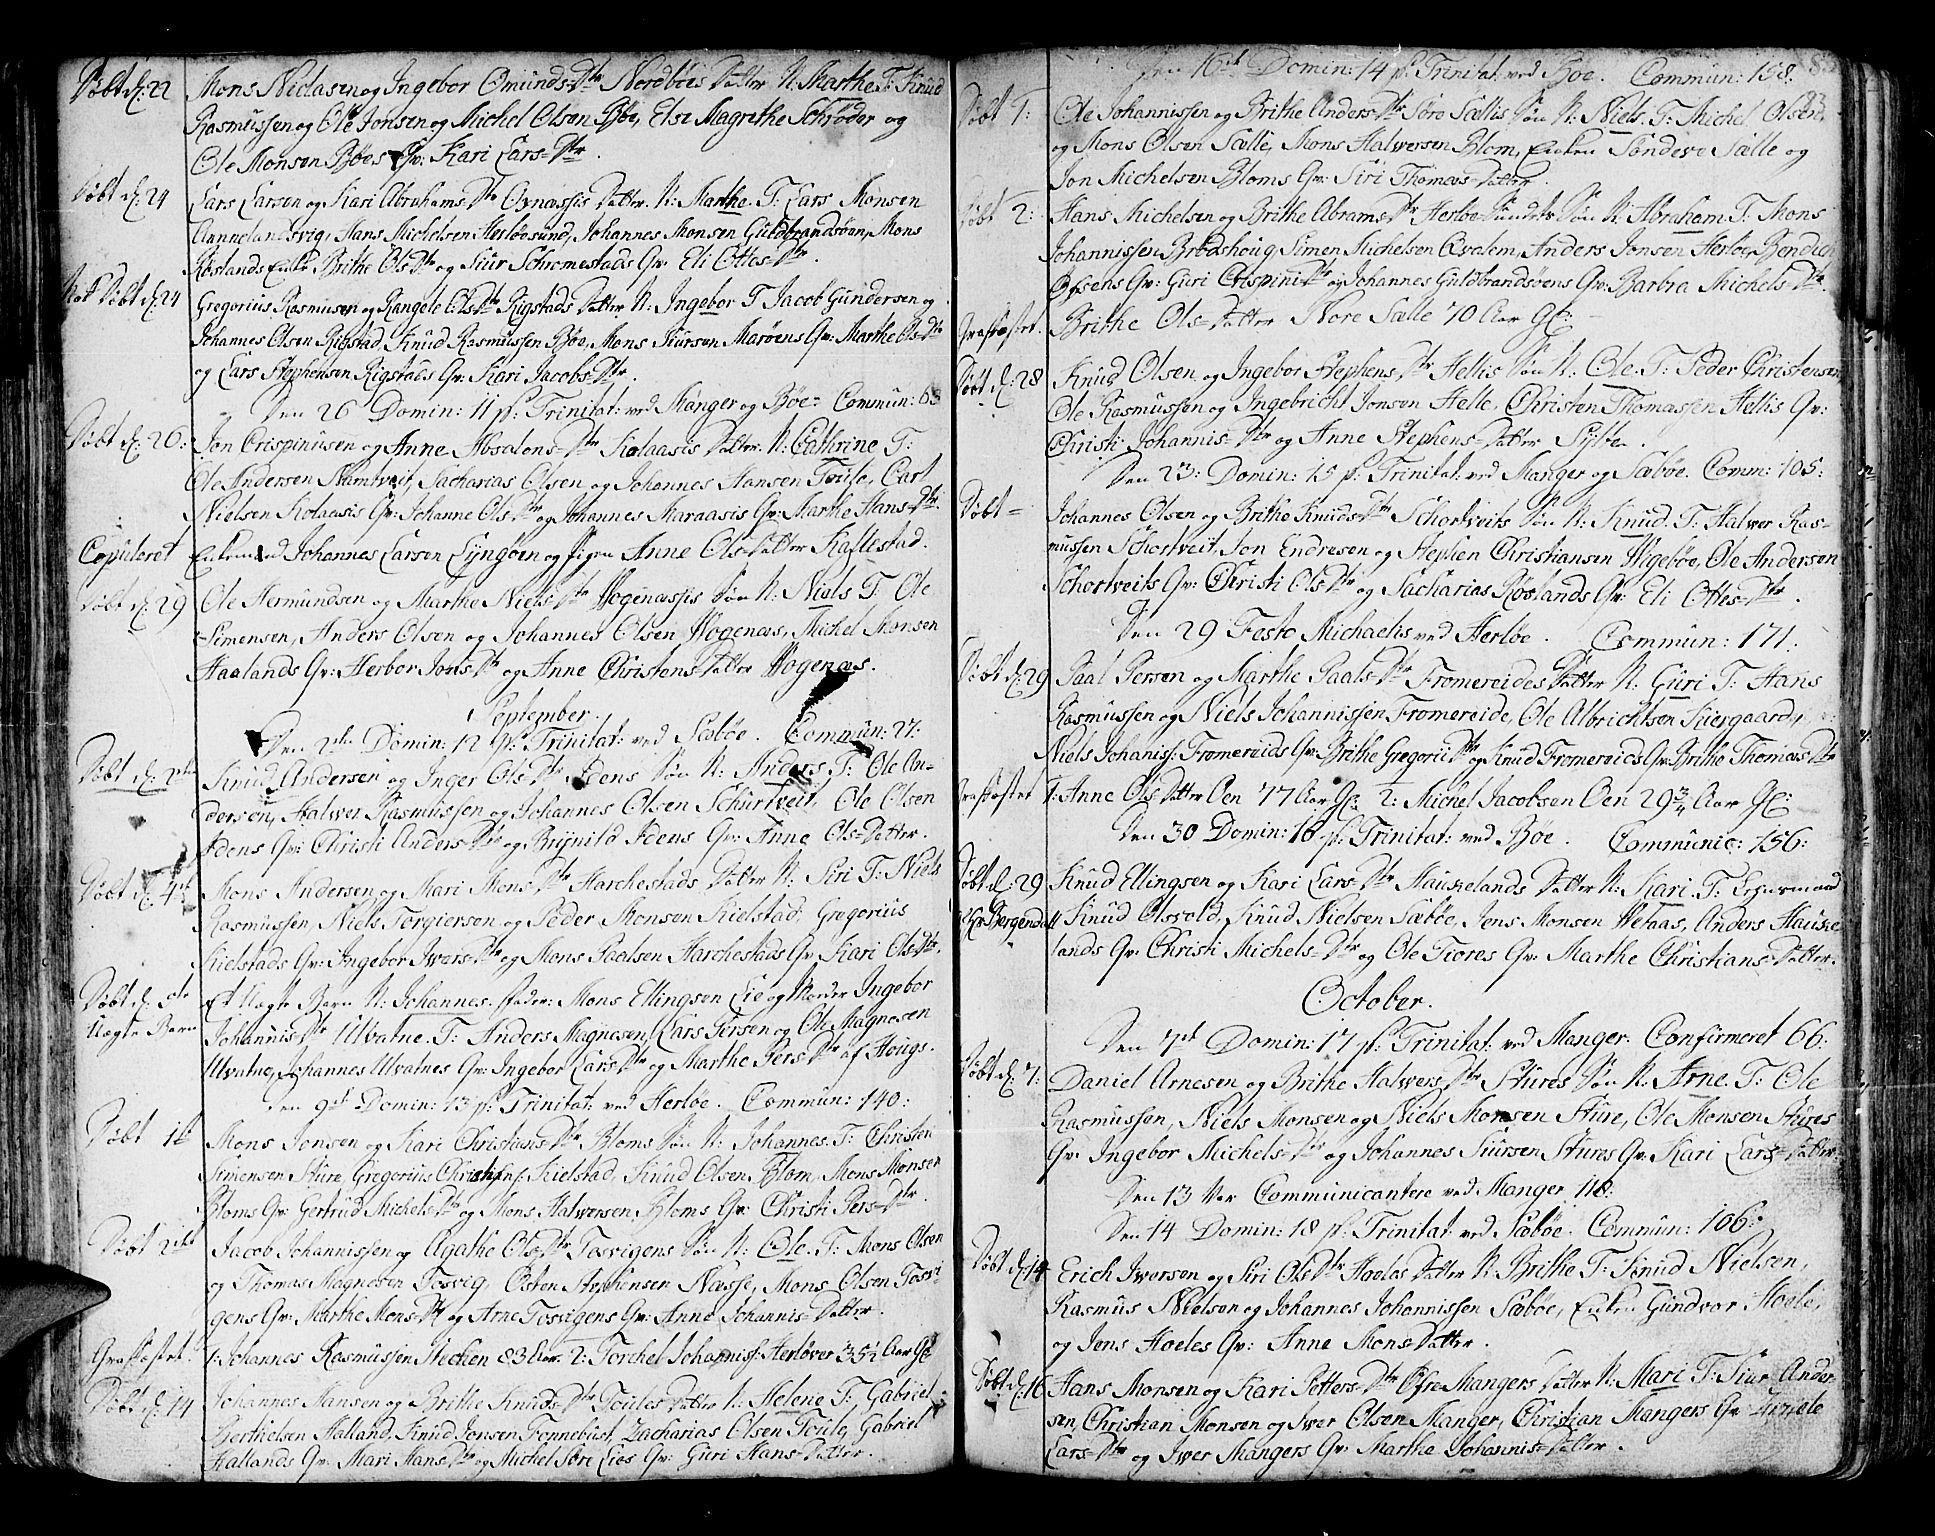 Døbt d: 22 Mons Niclasen og Ingebor Omunds Dtr Nordbøes Datter N: Marthe T: Knud
Rasmussen og Ole Jonsen og Michel Olsen Bøe, Else Magrethe Schrøder og
Ole Monsen Bøes Qv: Kari Lars Dtr.
Døbt d: 24 Lars Larsen og Kari Abrahams Dtr Oxnæssis Datter N: Marthe T: Lars Monsen
Annelandsvig, Hans Michelsen Herløesund, Johannes Monsen Guldbrandsøen, Mons
Røslands Enke Brithe Ols Dtr og Siur Schromestads Qv: Eli Ottes Dtr.
Not Døbt d: 24 Gregorius Rasmusen og Rangele Ols Dtr Rigstads Datter N: Ingebor T Jacob Gundersen og
Johannes Olsen Rigstad, Knud Rasmussen Bøe, Mons Siursen Marøens Qv: Marthe Ols Dtr
og Lars Stephensen Rigstads Qv: Kari Jacobs Dtr.
Den 26 Domin: 11 p: Trinitat: ved Manger og Bøe: Commun: 63
Døbt d: 26: Jon Crispinusen og Anne Absalons Dtr Kolaasis Datter N: Cathrine T:
Ole Andersen Namtveit, Sacharias Olsen og Johannes Hansen Toule, Carl
Nielsen Kolaasis Qv: Johanne Ols Dtr og Johannes Maraasis Qv: Marthe Hans Dtr:
Copuleret Enkemand Johannes Larsen Lyngøen og Pigen Anne Ols Datter Kallestad.
Døbt d: 29 Ole Hermundsen og Marthe Niels Dtr Wogenæssis Søn N: Niels T: Ole
Simensen, Anders Olsen og Johannes Olsen Wogenæs, Michel Monsen
Haalands Qv: Herbor Jons Dtr og Anne Christens Datter Wogenæs.
September.
Den 2den Domin: 12 p: Trinitat: ved Sæbøe. Commun: 27:
Døbt d: 2den Knud Andersen og Inger Ols Dtr Idens Søn N: Anders T: Ole An-
dersen, Halwer Rasmussen og Johannes Olsen Schurtveit, Ole Olsen
Idens Qv: Christi Anders Dtr og Brynild Idens Qv: Anne Ols Datter.
Døbt d: 4de Mons Andersen og Mari Mons Dtr Harchestads Datter N: Siri T: Niels
Rasmussen, Niels Torgiersen og Peder Monsen Kielstad, Gregorius
Kielstads Qv: Ingebor Iwers Dtr og Mons Paalsen Harchestads Qv Kari Ols Dtr.
Døbt d: 5te Et Uægte Barn N: Johannes. Fader: Mons Ellingsen Lie og Moder Ingebor
Uægte Barn Johannis Dtr Ulvatne. T: Anders Magnesen, Lars Persen og Ole Magnesen
Ulvatne, Johannes Ulvatnes Qv: Ingebor Lars Dtr og Marthe Pers Dtr af Hougs.
Den 9de Domin: 13 p: Trinitat: ved Herløe. Commun: 140:
Døbt 1te Mons Jonsen og Kari Christians Dtr Bloms Søn N: Johannes. T: Christen
Simensen Sture, Gregorius Christens: Kielstad, Knud Olsen Blom, Mons Monsen
Bloms Qv: Gertrud Michels Dtr og Mons Halversen Bloms Qv: Christi Pers Dtr.
Døbt 2det Jacob Johannissen og Agathe Ols Dtr Tosvigens Søn N: Ole. T: Mons Olsen
og Thomas Magnesen Tosvig, Osten Stephensen Næsse, Mons Olsen Tosvi-
gens Qv: Marthe Mons Dtr og Arne Tosvigens Qv: Anne Johannis Datter.
Grafæstet. 1: Johannes Rasmussen Stechen 83 Aar. 2: Torchel Johannis: Herløver 35½ Aar Gl:
Døbt d: 14 Johannes Hansen og Brithe Knuds Dtr Toules Datter N: Helene T: Gabriel
Berthelsen Halland, Knud Jonsen Fonnebust, Zacharias Olsen Toule, Gabriel
Hallands Qv: Mari Hans Dtr og Michel Søre Lies Qv: Guri Hans Datter.
Den 16de Domin: 14 p: Trinitat: ved Bøe. Commun: 158.
Døbt 1: Ole Johannissen og Brithe Anders Dtr Søre Sællis Søn N: Niels. T: Michel Olsen
og Mons Olsen Sælle, Mons Halversen Blom, Enken Sondeve Sælle og
Jon Michelsen Bloms Qv: Siri Thomæs Datter.
Døbt 2: Hans Michelsen og Brithe Abrams Dtr Herløe Sundets Søn N: Abraham. T: Mons
Johannissen Brodshoug, Simen Michelsen Qvalem, Anders Jonsen Herløe, Bendich
Ofsens Qv: Guri Crispini Dtr og Johannes Guldbrandsøens Qv: Barbra Michels Dtr.
Grafæstet. Brithe Ols Datter Nore Sælle 70 Aar Gl:
Døbt d: 28 Knud Olsen og Ingebor Stephens Dtr Hellis Søn N: Ole. T: Peder Christensen
Ole Rasmussen og Ingebricht Jonsen Helle, Christen Thomassen Hellis Qv:
Christi Johannis Dtr og Anne Stephens Datter Syltea.
Den 23: Domin: 15 p: Trinitat: ved Manger og Sæbøe. Comm: 105:
Døbt = Johannes Olsen og Brithe Knuds Dtr Schortveits Søn N: Knud. T: Halwer Ras-
mussen Schortveit, Jon Endresen og Stephen Christiansen Wigebøe, Ole Andersen
Schortveits Qv: Christi Ols Dtr og Sacharias Røslands Qv: Eli Ottes Dtr.
Den 29 Festo Michaelis ved Herløe. Commun: 171.
Døbt d: 29 Paal Persen og Marthe Paals Dtr Fromereides Datter N: Guri T: Hans
Rasmussen og Niels Johannissen Fromereide, Ole Albrichtsen Kiergaard,
Niels Johaniss: Fromereids Qv: Brithe Gregorii Dtr og Knud Fromereids Qv: Brithe Thomæs Dtr
Grafæstet 1: Anne Ols Datter Oen 77 Aar Gl: 2: Michel Jacobsen Oen 29¾ Aar Gl:
Den 30 Domin: 16 p: Trinitat: ved Bøe. Communic: 156:
Døbt d: 29 Knud Ellingsen og Kari Lars Dtr Hauskelands Datter N: Kari. T: Lehnsmand
Hr Bergendal Knud Olsvold, Knud Nielsen Sæbøe, Jens Monsen Wetaas, Anders Hauske-
lands Qv: Christi Michels Dtr og Ole Fiores Qv: Marthe Christians Datter.
October.
Den 7de Domin: 17 p: Trinitat: ved Manger. Confirmeret 66:
Døbt d: 7: Daniel Arnesen og Brithe Halwers Dtr Stures Søn N: Arne. T: Ole
Rasmussen, Niels Monsen og Niels Monsen Sture, Ole Monsen Stures
Qv: Ingebor Michels Dtr og Johannes Siursen Stures Qv: Kari Lars Datter.
Den 13 Var Communicantere ved Manger 110:
Den 14 Domin: 18 p: Trinitat: ved Sæbøe. Commun: 106:
Døbt d: 14 Erich Iversen og Siri Ols Dtr Hoeles Datter N: Brithe T: Knud Nielsen,
Rasmus Nielsen og Johannes Johannissen Sæbøe, Enken Gundvor Hoele,
og Jens Hoeles Qv: Anne Mons Datter.
Døbt d: 16 Hans Monsen og Kari Petters Dtr Øfre Mangers Datter N: Mari T: Siur Ander-
sen, Christian Monsen og Iwer Olsen Manger, Christian Mangers Qv
Lars Dtr og Iwer Mangers Qv: Marthe Johannis Datter.